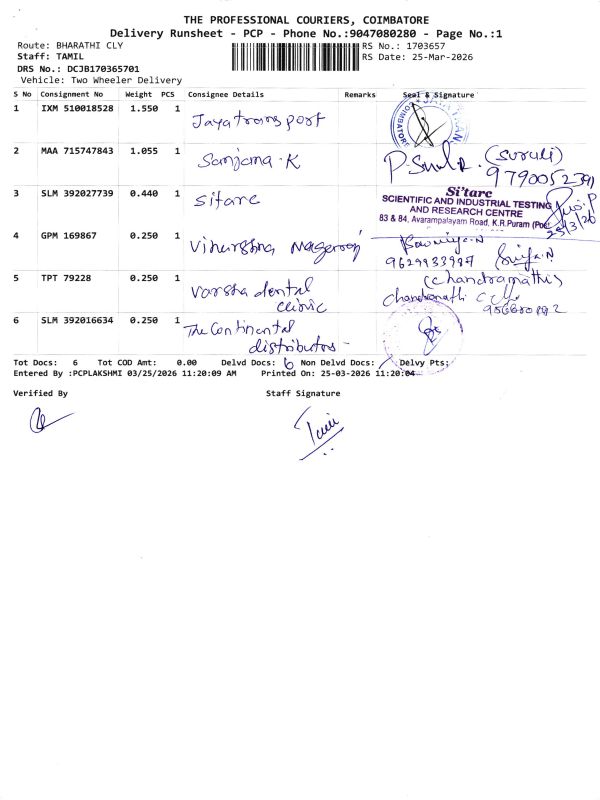 THE PROFESSIONAL COURIERS, COIMBATORE
Delivery Runsheet - PCP - Phone No.:9047080280 - Page No.:1
Route: BHARATHI CLY RS No.: 1703657
Staff: TAMIL RS Date: 25-Mar-2026
DRS No.: DCJB170365701
Vehicle: Two Wheeler Delivery
S No Consignment No Weight PCS Consignee Details Remarks Seal & Signature
1 IXM 510018528 1.550 1 Jayatransport
2 MAA 715747843 1.055 1 Sanjana.K (suruli)
9790052391
3 SLM 392027739 0.440 1 sitarc
Si'tarc
SCIENTIFIC AND INDUSTRIAL TESTING
AND RESEARCH CENTRE
83 & 84, Avarampalayam Road, K.R.Puram (Post
25/3/26
4 GPM 169867 0.250 1 Sowmiya.N
9629933997
5 TPT 79228 0.250 1 Varsha dental clinic (Chandramathi)
6 SLM 392016634 0.250 1 The Continental distributors
Tot Docs: 6 Tot COD Amt: 0.00 Delvd Docs: 6 Non Delvd Docs: Delvy Pts:
Entered By :PCPLAKSHMI 03/25/2026 11:20:09 AM Printed On: 25-03-2026 11:20:04
Verified By Staff Signature